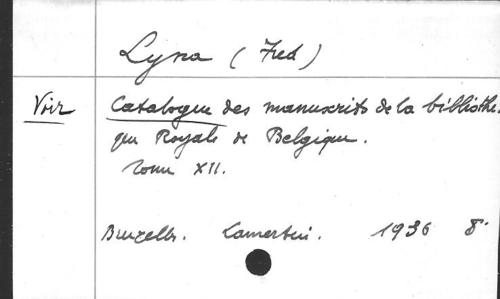 Lyna (Fred)
Voir Catalogue des manuscrits de la bibliothe.
que Royale de Belgique.
tome XII.
Bruxelles. Lamertin. 1936 8°